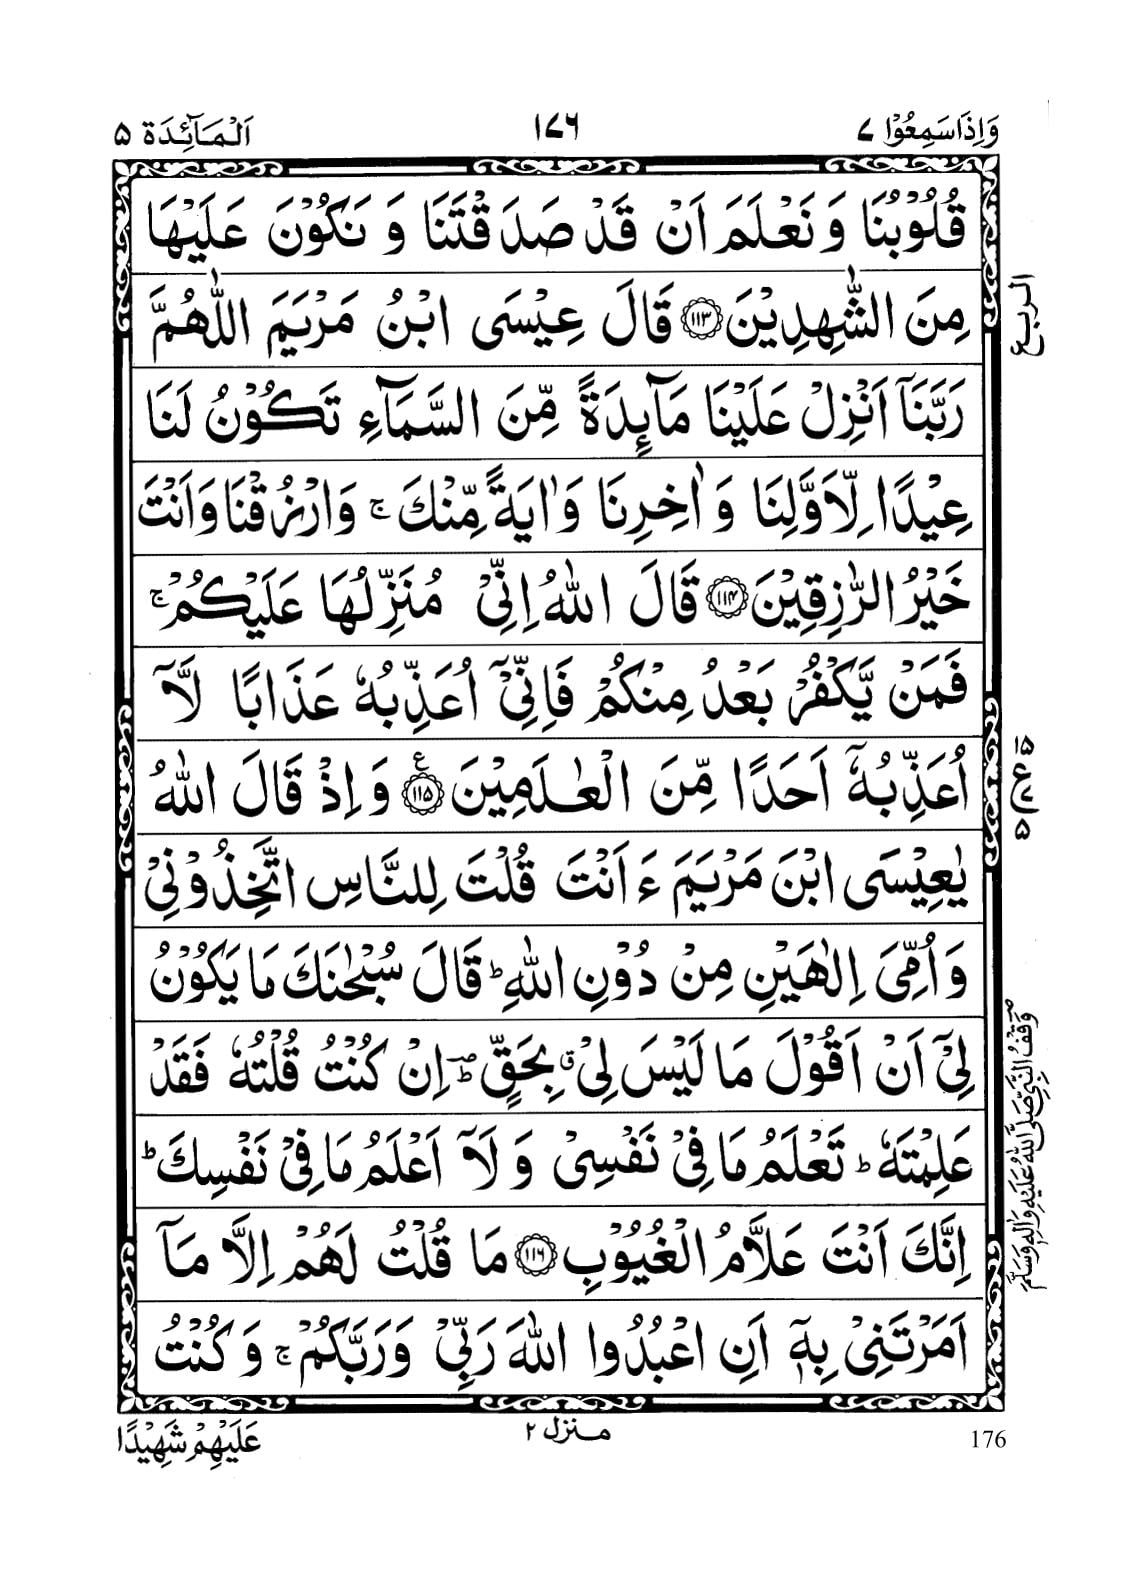 وَاِذَاسَمِعُوْا ٧
١٧٦
اَلْمَآئِدَة ٥
قُلُوْبُنَا وَ نَعْلَمَ اَنْ قَدْ صَدَقْتَنَا وَ نَكُوْنَ عَلَيْهَا
مِنَ الشّٰهِدِيْنَ ۝١١٣ قَالَ عِيْسَى ابْنُ مَرْيَمَ اللّٰهُمَّ
الربع
رَبَّنَآ اَنْزِلْ عَلَيْنَا مَآئِدَةً مِّنَ السَّمَآءِ تَكُوْنُ لَنَا
عِيْدًا لِّاَوَّلِنَا وَ اٰخِرِنَا وَ اٰيَةً مِّنْكَ ۚ وَارْزُقْنَا وَاَنْتَ
خَيْرُ الرّٰزِقِيْنَ ۝١١٤ قَالَ اللّٰهُ اِنِّيْ مُنَزِّلُهَا عَلَيْكُمْ ۚ
فَمَنْ يَّكْفُرْ بَعْدُ مِنْكُمْ فَاِنِّيْٓ اُعَذِّبُهٗ عَذَابًا لَّآ
اُعَذِّبُهٗٓ اَحَدًا مِّنَ الْعٰلَمِيْنَ ۝١١٥ ع وَ اِذْ قَالَ اللّٰهُ
١٥
ع
٥
يٰعِيْسَى ابْنَ مَرْيَمَ ءَاَنْتَ قُلْتَ لِلنَّاسِ اتَّخِذُوْنِيْ
وَ اُمِّيَ اِلٰهَيْنِ مِنْ دُوْنِ اللّٰهِ ؕ قَالَ سُبْحٰنَكَ مَا يَكُوْنُ
لِيْٓ اَنْ اَقُوْلَ مَا لَيْسَ لِيْ ۗ بِحَقٍّ ؕ اِنْ كُنْتُ قُلْتُهٗ فَقَدْ
عَلِمْتَهٗ ؕ تَعْلَمُ مَا فِيْ نَفْسِيْ وَ لَآ اَعْلَمُ مَا فِيْ نَفْسِكَ ؕ
وَقْفُ النَّبِيِّ صَلَّى اللّٰهُ عَلَيْهِ وَاٰلِهٖ وَسَلَّمَ
اِنَّكَ اَنْتَ عَلَّامُ الْغُيُوْبِ ۝١١٦ مَا قُلْتُ لَهُمْ اِلَّا مَآ
اَمَرْتَنِيْ بِهٖٓ اَنِ اعْبُدُوا اللّٰهَ رَبِّيْ وَرَبَّكُمْ ۚ وَ كُنْتُ
عَلَيْهِمْ شَهِيْدًا
منزل ٢
176